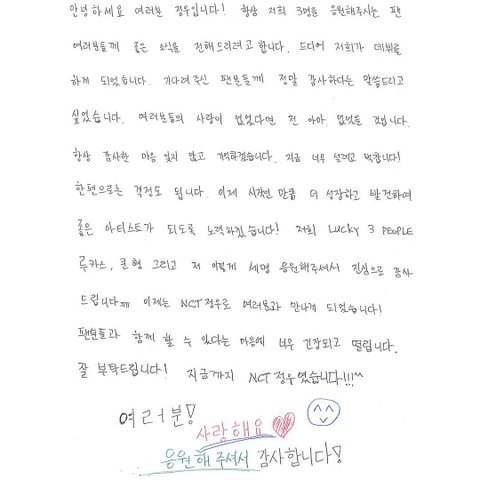 안녕하세요 여러분 정우입니다! 항상 저희 3명을 응원해주시는 팬
여러분들께 좋은 소식을 전해드리려고 합니다. 드디어 저희가 데뷔를
하게 되었습니다. 기다려주신 팬분들께 정말 감사하다는 말씀드리고
싶었습니다. 여러분들의 사랑이 없었다면 전 아마 없었을 것입니다.
항상 감사한 마음 잊지 않고 기억하겠습니다. 지금 너무 설레고 벅찹니다!
한편으로는 걱정도 됩니다. 이제 시작인 만큼 더 성장하고 발전하여
좋은 아티스트가 되도록 노력하겠습니다! 저희 Lucky 3 PEOPLE
루카스, 쿤형 그리고 저 이렇게 세명 응원해주셔서 진심으로 감사
드립니다ㅠㅠ 이제는 NCT 정우로 여러분과 만나게 되었습니다!
팬분들과 함께 할 수 있다는 마음에 너무 긴장되고 떨립니다.
잘 부탁드립니다! 지금까지 NCT 정우였습니다!!!^^
여러분!
사랑해요
응원해 주셔서 감사합니다!